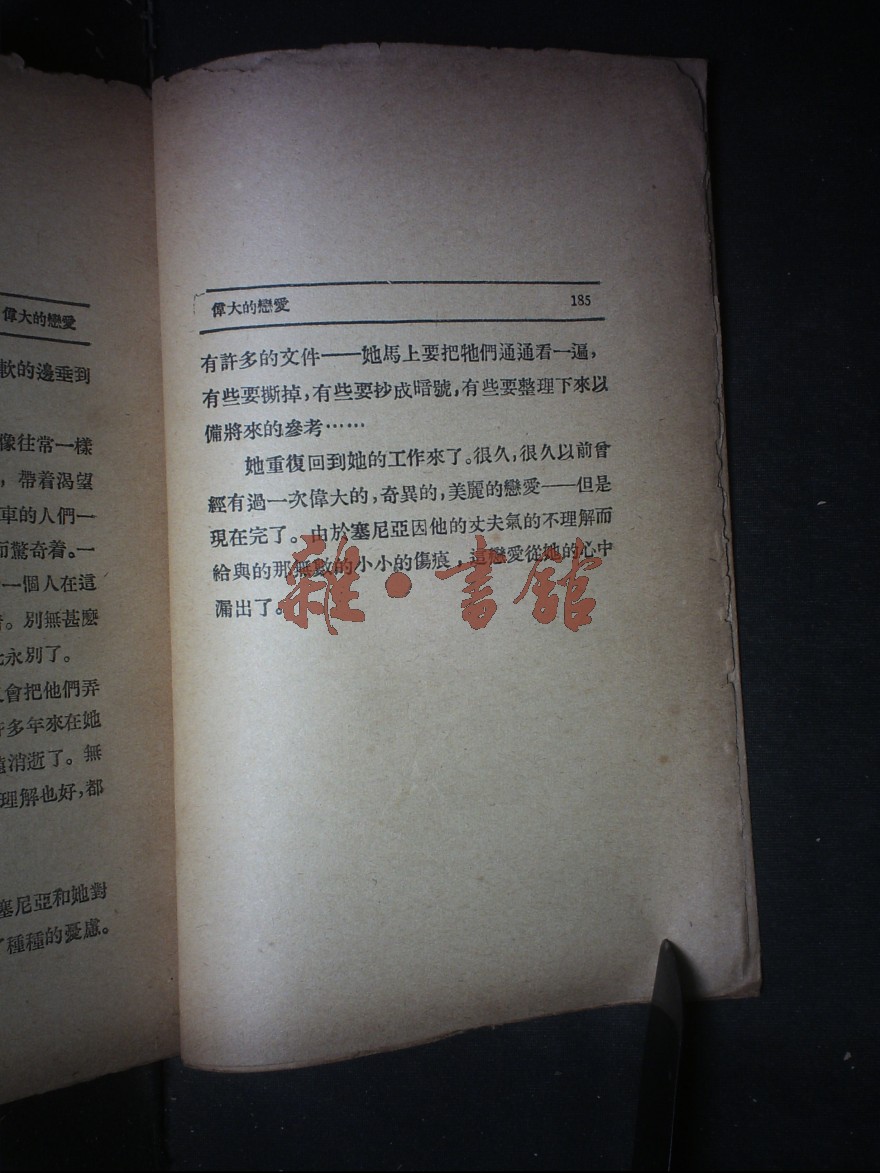 偉大的戀愛
軟的邊垂到
像往常一樣
，帶着渴望
車的人們一
而驚奇着。一
一個人在這
。別無甚麼
永別了。
會把他們弄
多年來在她
消逝了。無
理解也好，都
塞尼亞和她對
種種的憂慮。
偉大的戀愛 185
有許多的文件——她馬上要把牠們通通看一遍，
有些要撕掉，有些要抄成暗號，有些要整理下來以
備將來的參考……
她重復回到她的工作來了。很久，很久以前曾
經有過一次偉大的，奇異的，美麗的戀愛——但是
現在完了。由於塞尼亞因他的丈夫氣的不理解而
給與的那無數的小小的傷痕，這戀愛從她的心中
漏出了。
雜·書館